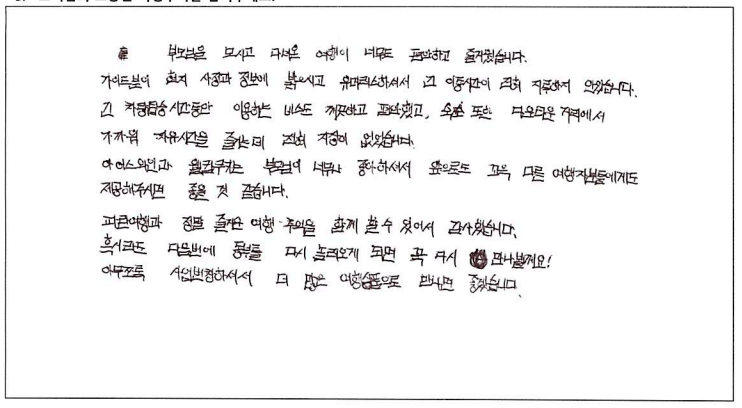 부모님을 모시고 다녀온 여행이 너무도 편안하고 즐거웠습니다.
가이드분이 현지 사정과 정보에 밝으시고 유머러스하셔서 긴 이동시간이 전혀 지루하지 않았습니다.
긴 차량탑승시간동안 이용하는 버스도 깨끗하고 편안했고, 숙소 또한 다운타운 거리에서
가까워 자유시간을 즐기는데 전혀 지장이 없었습니다.
아이스와인과 웰컴쿠키는 부모님이 너무나 좋아하셔서 앞으로도 꼬옥 다른 여행자분들에게도
제공해주시면 좋을 것 같습니다.
파란여행과 정말 즐거운 여행 추억을 함께 할 수 있어서 감사했습니다.
혹시라도 다음번에 동부를 다시 놀러오게 되면 꼭 다시 만나뵐게요!
아무쪼록 사업번창하셔서 더 많은 여행상품으로 만나면 좋겠습니다.